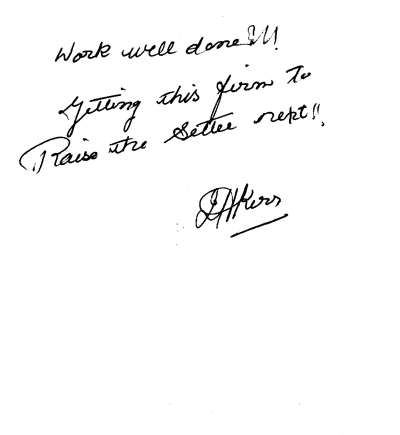 Work well done!!!
Getting this firm to
Raise the Settee nept!!.